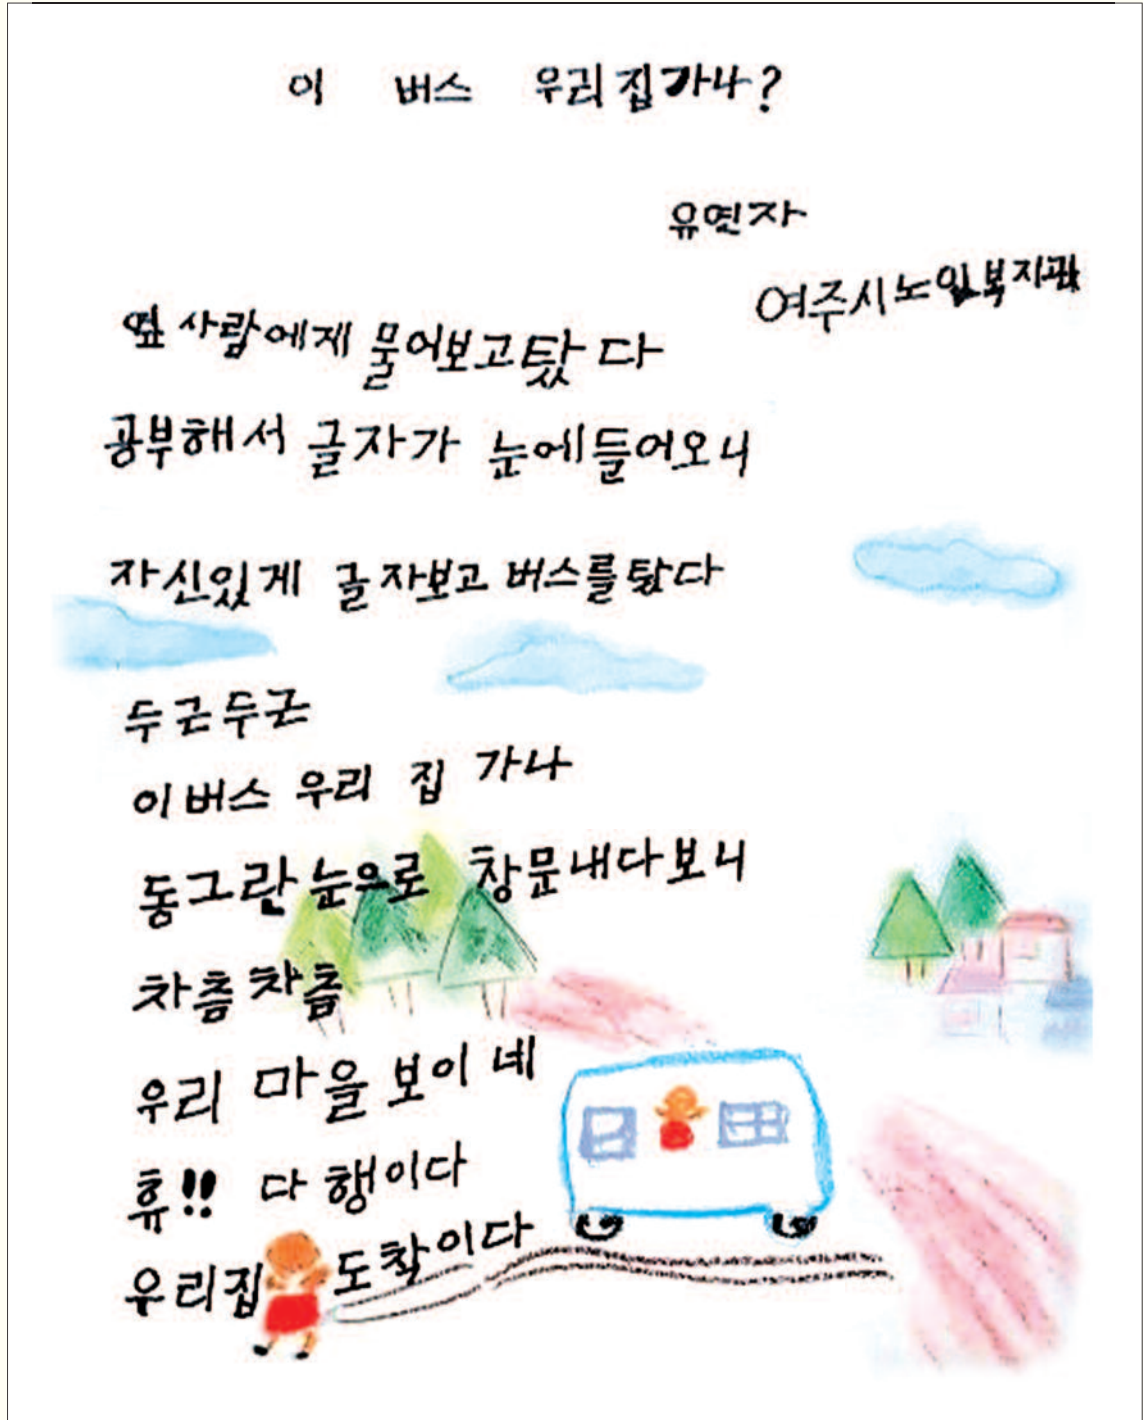 이 버스 우리집가나?
유연자
여주시노인복지관
옆 사람에게 물어보고탔다
공부해서 글자가 눈에들어오니
자신있게 글자보고 버스를탔다
두근두근
이버스 우리 집 가나
동그란눈으로 창문내다보니
차츰차츰
우리 마을 보이네
휴!! 다행이다
우리집 도착이다